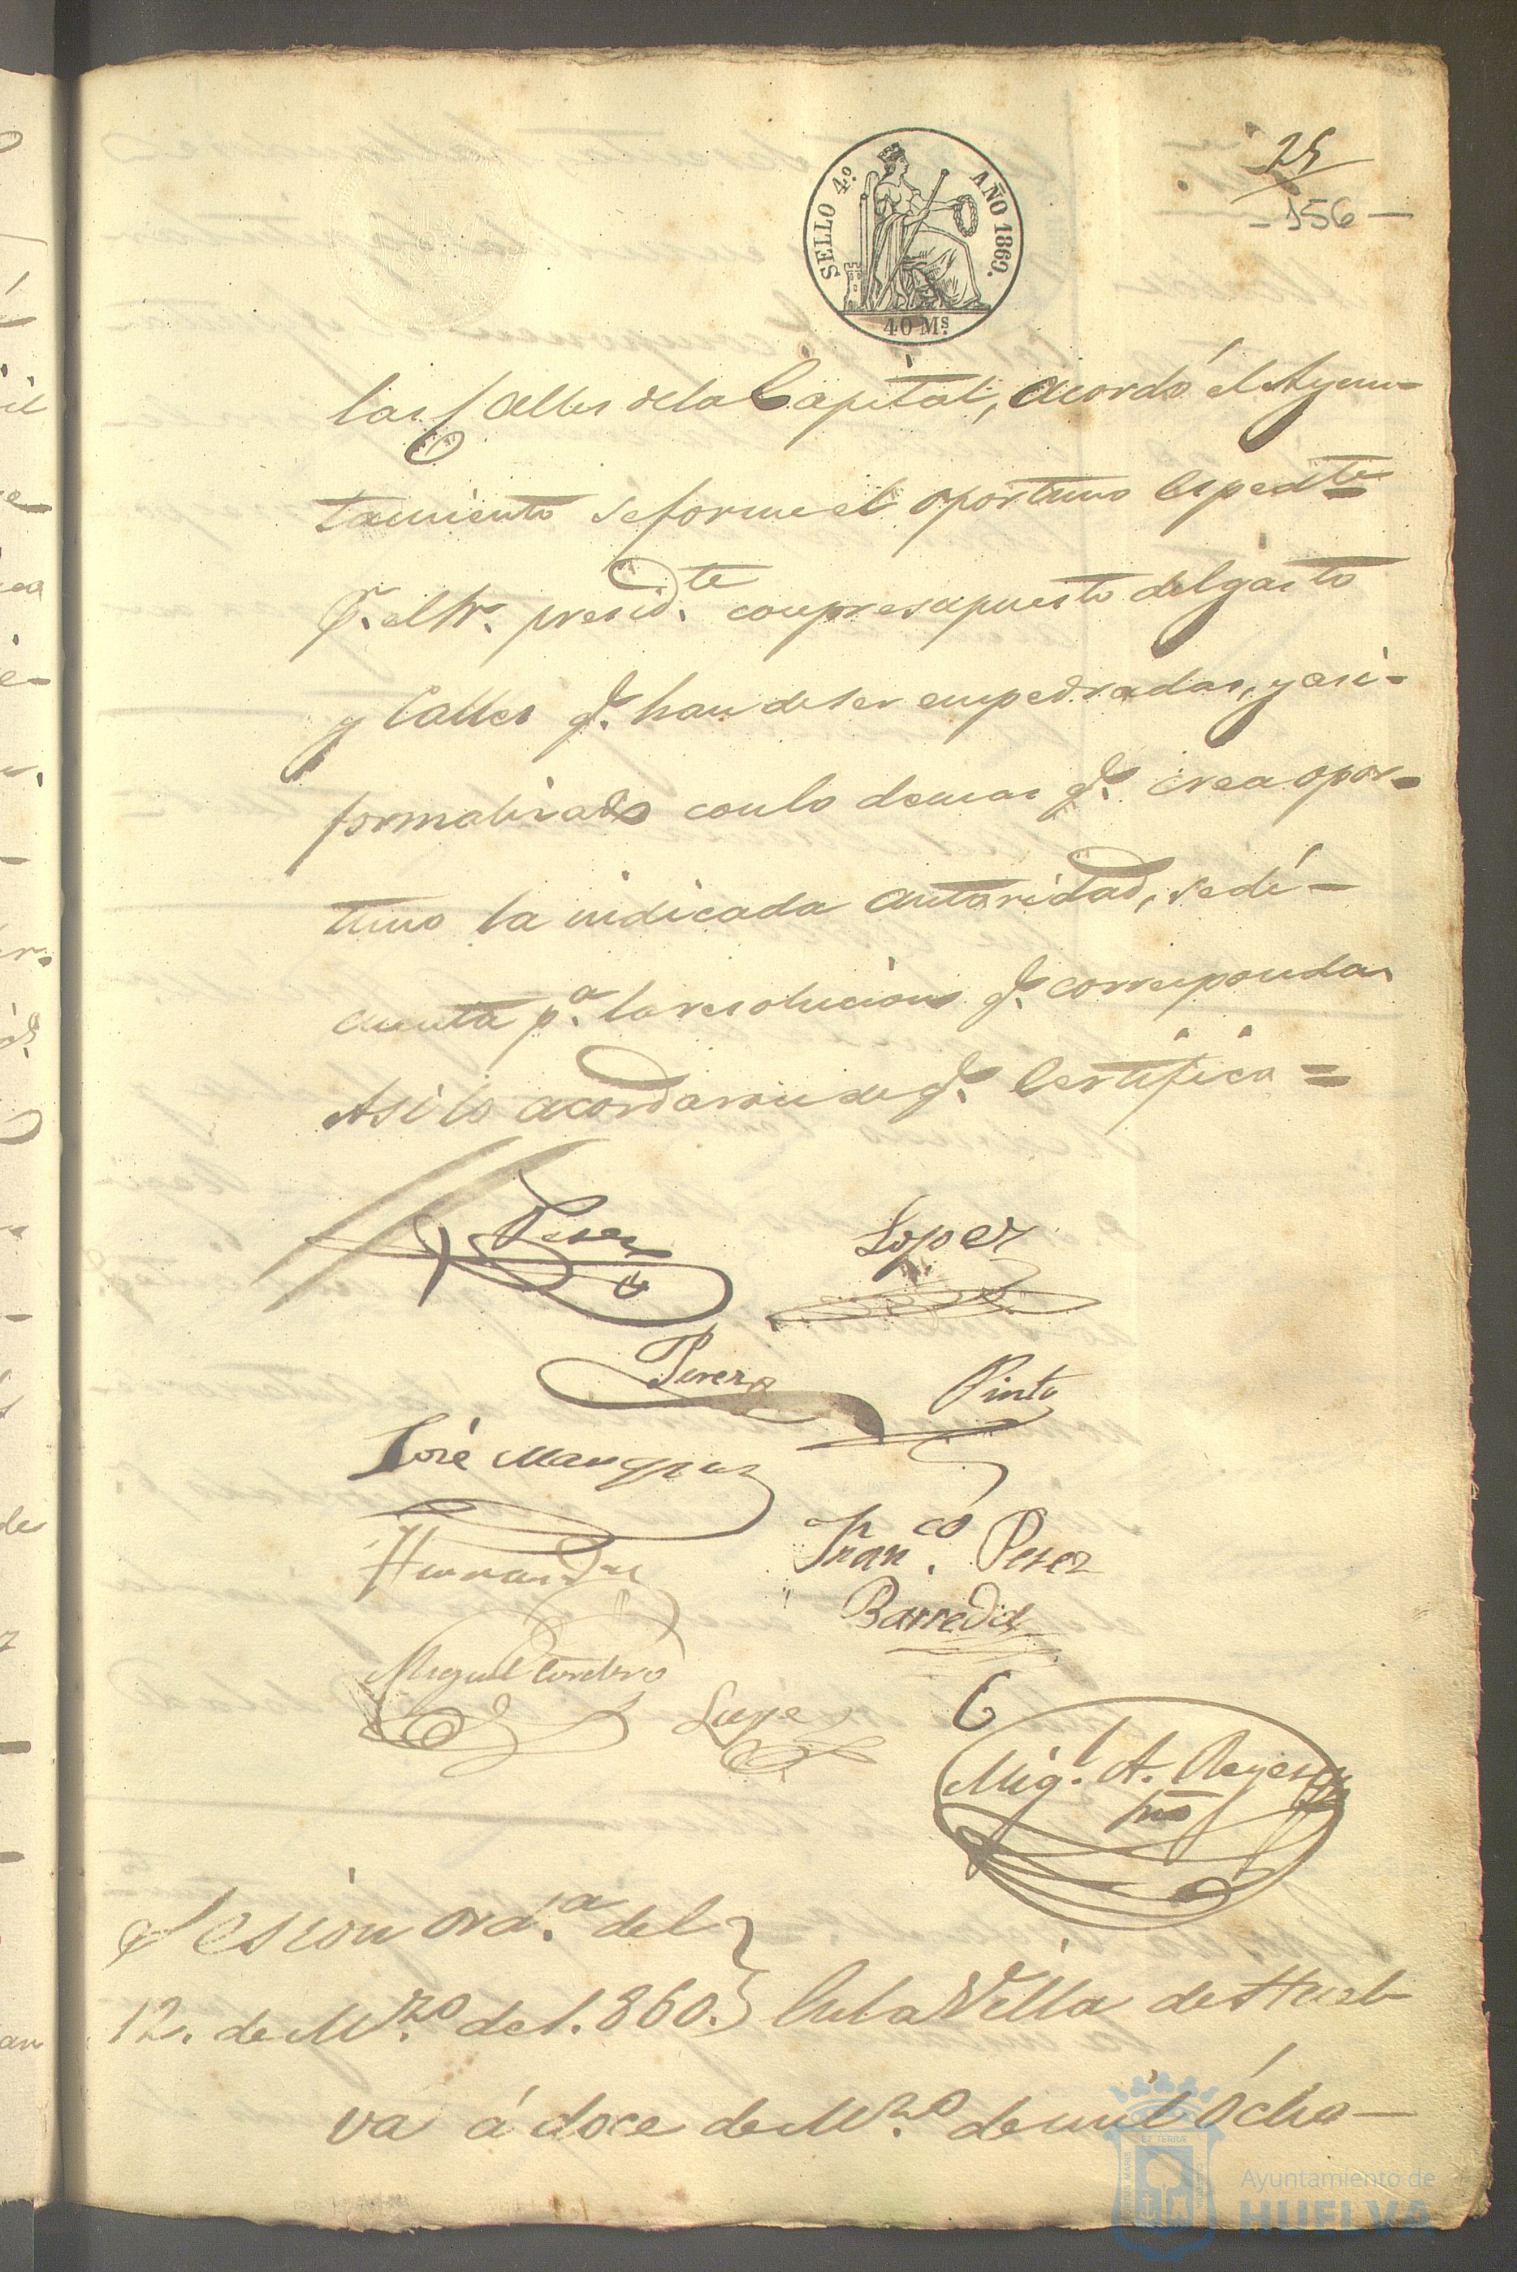 SELLO 4.º AÑO 1860.
40 Ms.
25
- 156 -
las Calles de la Capital, acordó el Ayun-
tamiento se forme el oportuno Espedte
q.e el Sr. presid.te con presupuesto del gasto
y Calles q.e han de ser empedradas, y asi-
formalizado con lo demas q.e crea opor-
tuno la indicada autoridad, se dé-
cuenta p.a la resolucion q.e corresponda
Asi lo acordaron de q.e Certifico =
Lopez
Perez
Pinto
José Marquez
Hernandez
Fran.co Perez
Barreda
Miguel Cordero
Lopez
Mig.l A. Reyes
Sesion ord.a del
12. de M.zo de 1.860.
En la Villa de Huel-
va á doce de M.zo de mil ócho-
Ayuntamiento de
HUELVA